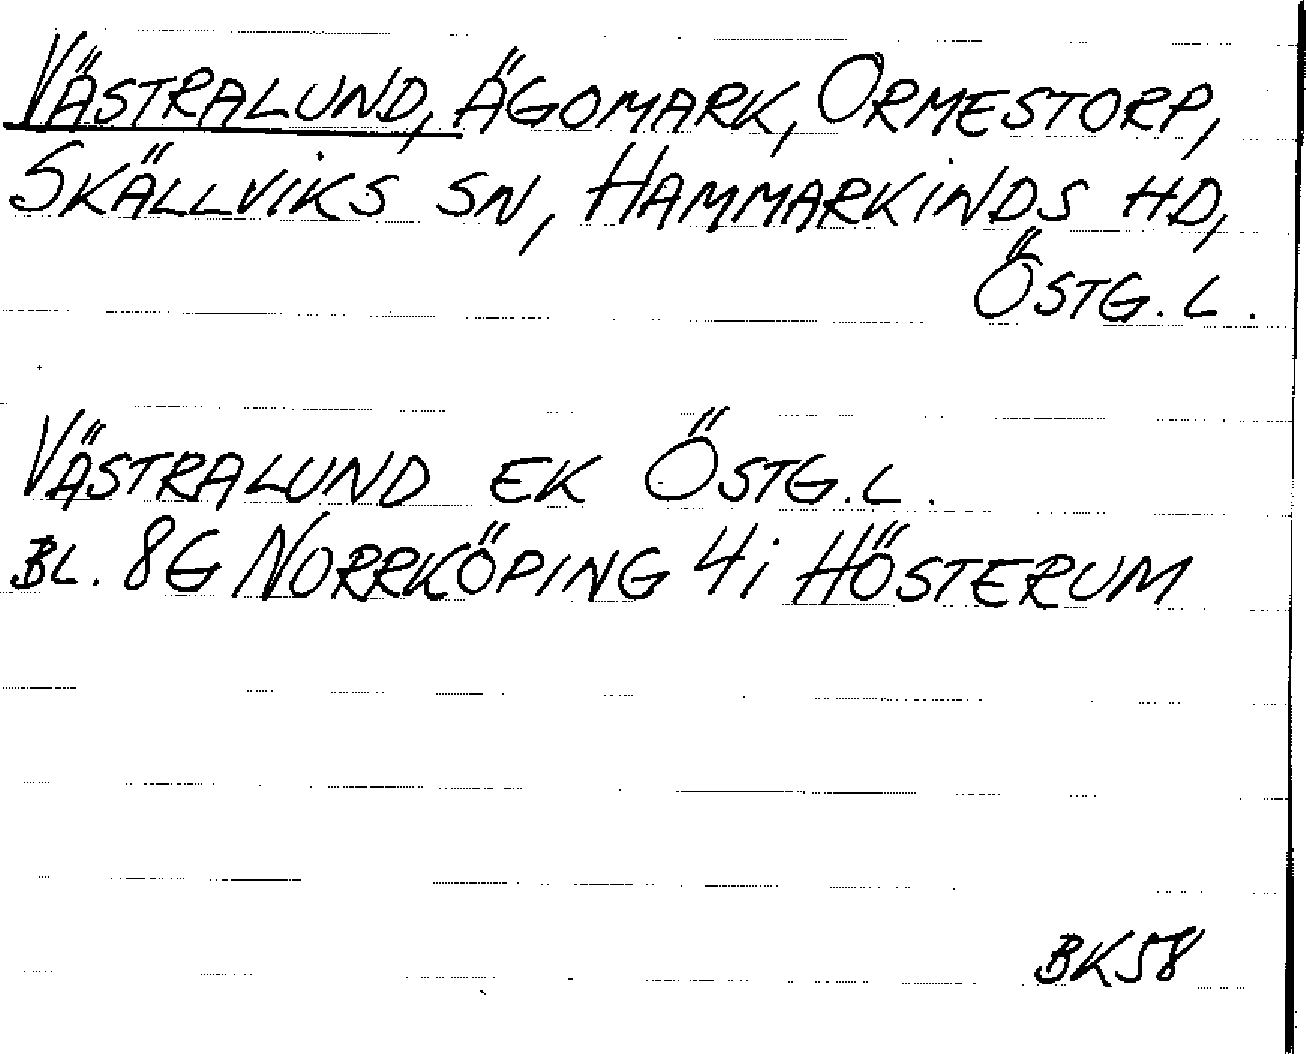 VÄSTRALUND, ÄGOMARK, ORMESTORP,
SKÄLLVIKS SN, HAMMARKINDS HD,
ÖSTG. L.
VÄSTRALUND EK ÖSTG. L.
BL. 8G NORRKÖPING 4i HÖSTERUM
BK58